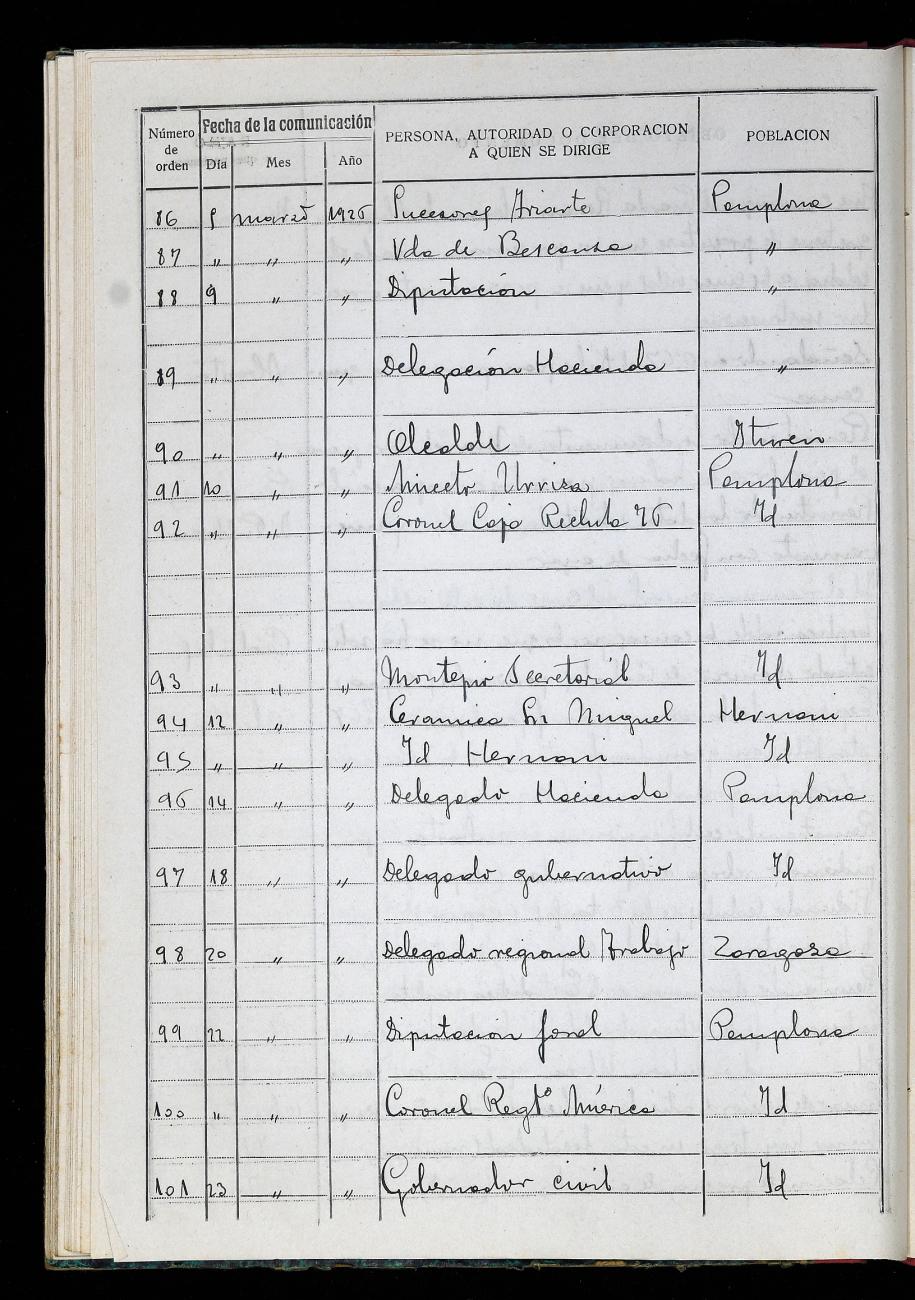 Número de orden Fecha de la comunicación PERSONA, AUTORIDAD O CORPORACION A QUIEN SE DIRIGE POBLACION
Día Mes Año
86 marzo 1926 Sucesores Ariarte Pamplona
87 " " " Vda de Bescansa "
88 9 " " Diputación "
89 " " " Delegación Hacienda "
90 " " " Alcalde Ituren
91 10 " " Aniceto Urriza Pamplona
92 " " " Coronel Caja Recluta 76 Id
93 " " " Montepio Secretarial Id
94 12 " " Ceramica Sn Miguel Hernani
95 " " " Id Hernani Id
96 14 " " Delegado Hacienda Pamplona
97 18 " " Delegado gubernativo Id
98 20 " " Delegado regional Trabajo Zaragoza
99 22 " " Diputacion foral Pamplona
100 " " " Coronel Regto América Id
101 23 " " Gobernador civil Id